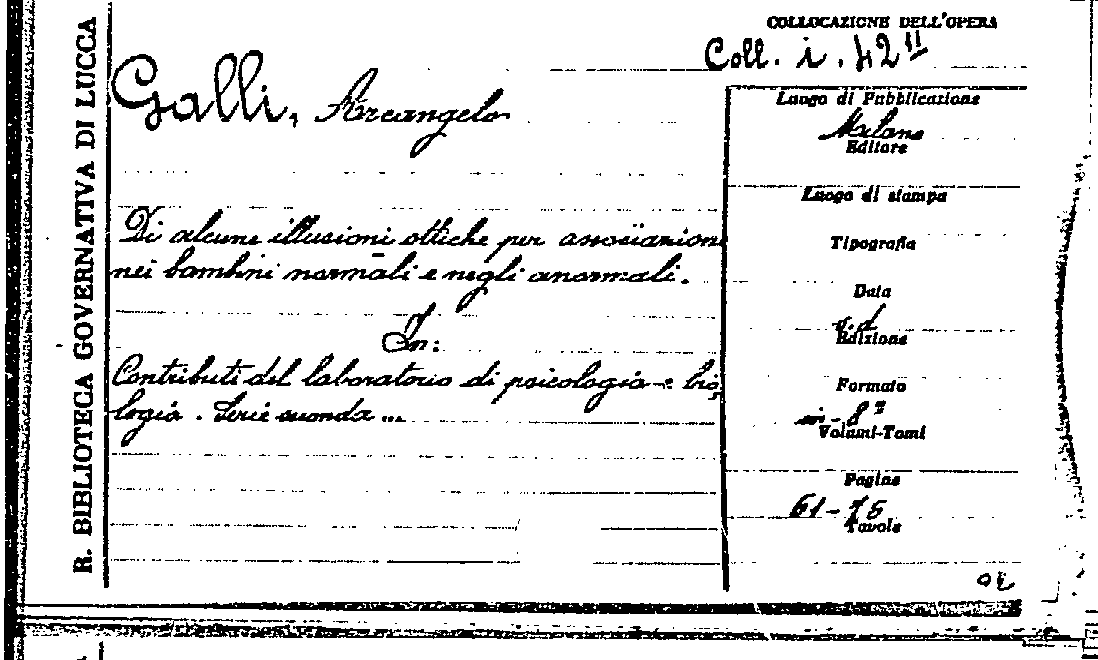 R. BIBLIOTECA GOVERNATIVA DI LUCCA
COLLOCAZIONE DELL'OPERA
Coll. i. 42 11
Galli, Arcangelo
Di alcune illusioni ottiche per associazione
nei bambini normali e negli anormali.
In:
Contributi del laboratorio di psicologia e bio
logia. Serie seconda ...
Luogo di Pubblicazione
Milano
Editore
Luogo di stampa
Tipografia
Data
s.d
Edizione
Formato
in-8°
Volumi-Tomi
Pagine
61-75
Tavole